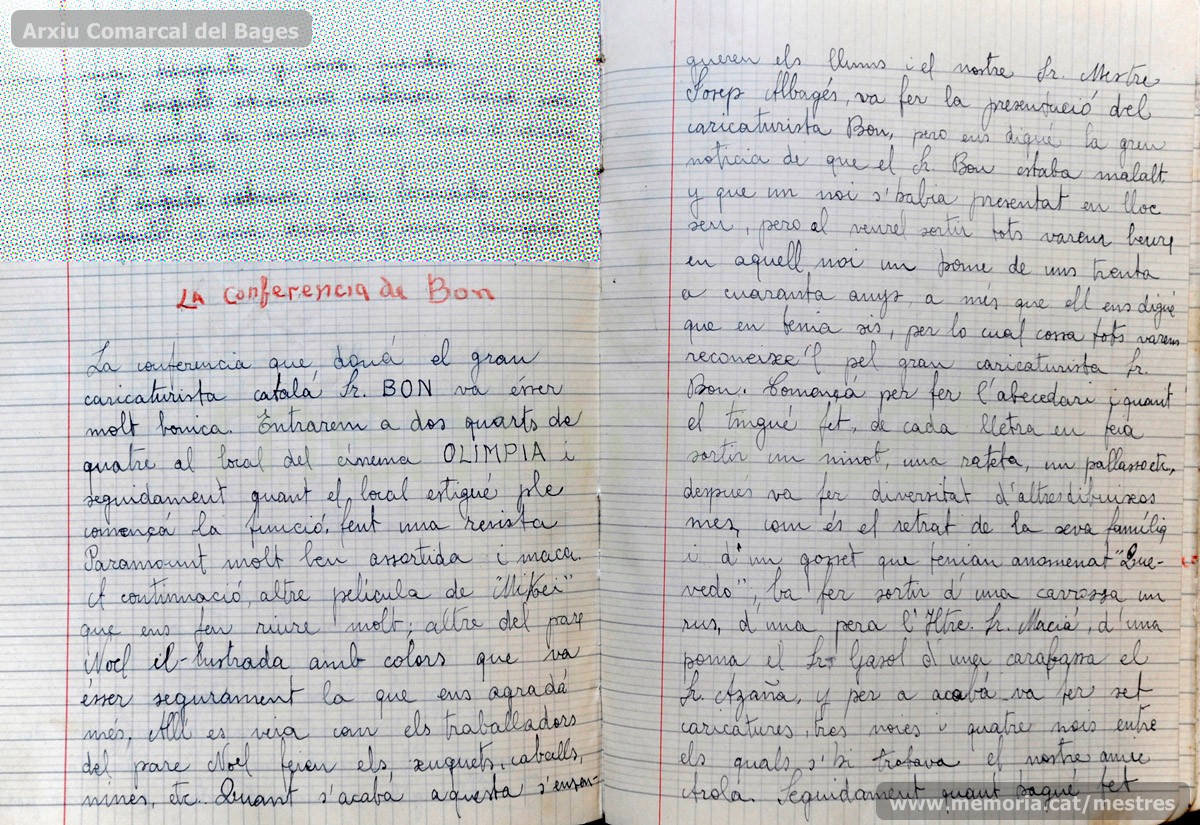 Arxiu Comarcal del Bages
La conferencia de Bon
La conferencia que doná el gran
caricaturista catalá Sr. BON va ésser
molt bonica. Entrarem a dos quarts de
quatre al local del cinema OLIMPIA i
seguidament quant el local estigué ple
començá la funció, fent una revista
Paramount molt ben assortida i maca.
A continuació, altre película de "Mikei"
que ens feu riure molt; altre del pare
Noel il-lustrada amb colors que va
ésser segurament la que ens agradá
més, Allí es veia com els traballadors
del pare Noel feian els xuguets, caballs,
nines, etc. Quant s'acabá aquesta s'encen-
gueren els llums i el nostre Sr. Mestre
Josep Albagés, va fer la presentació del
caricaturista Bon, pero ens digué la gran
noticia de que el Sr. Bon estaba malalt
y que un noi s'habia presentat en lloc
seu, pero al veurel sortir tots varem beure
en aquell noi un pome de uns trenta
a cuaranta anys, a més que ell ens digué
que en tenia sis, per lo cual cossa tots varem
reconeixe'l pel gran caricaturista Sr.
Bon. Començá per fer l'abecedari i quant
el tingué fet, de cada lletra en feia
sortir un ninot, una rateta, un pallasso etc,
després va fer diversitat d'altres dibuixos
mes, com és el retrat de la seva família
i d'un gosset que tenian anomenat "Que-
vedo", ba fer sortir d'una carrossa un
rus, d'una pera l'Iltre. Sr. Maciá, d'una
poma el Sr. Gasol d'una carabassa el
Sr. Azaña, y per a acabá va fer set
caricatures, tres noies i quatre nois entre
els quals s'hi trobava el nostre amic
Arola. Seguidament quant hagué fet
www.memoria.cat/mestres